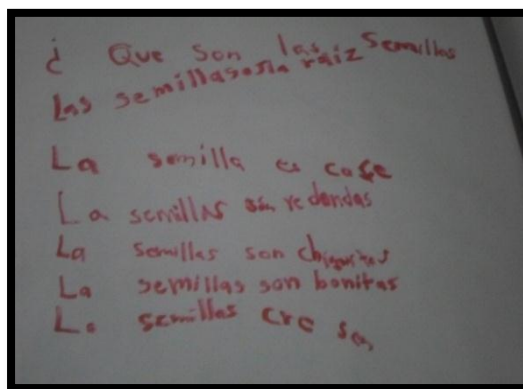 ¿ Que son las semillas
Las semillas es la raiz
La semilla es cafe
La semillas son redondas
La semillas son chiquitas
La semillas son bonitas
La semillas cre sen